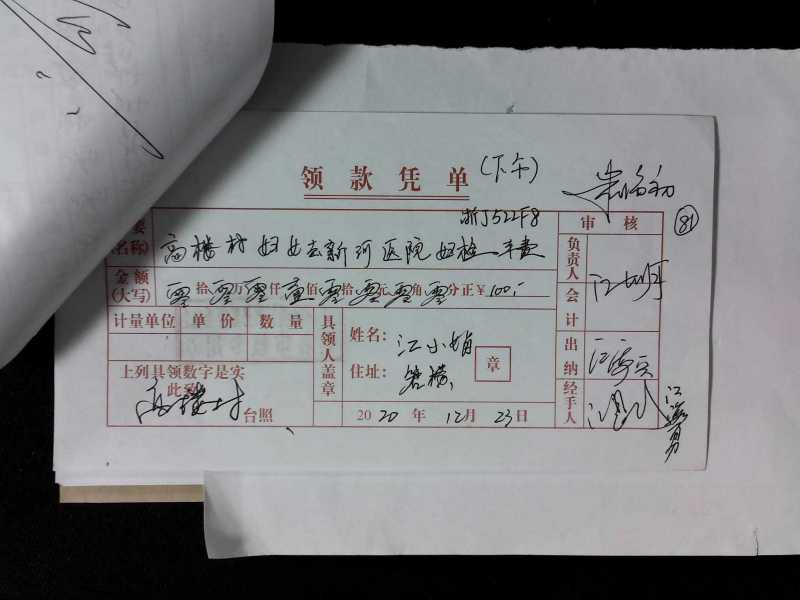 领款凭单 (下午)
浙J522F8
81
要
(名称) 高楼村妇女去新河医院妇检车费
审核
金额
(大写) 零拾零万零仟壹佰零拾零元零角零分正 ¥ 100.-
负责人
会计
计量单位 单价 数量
具领人盖章
姓名: 江小娟
章
出纳
住址:
上列具领数字是实
此致
高楼村 台照
2020年12月23日
经手人
江海勇